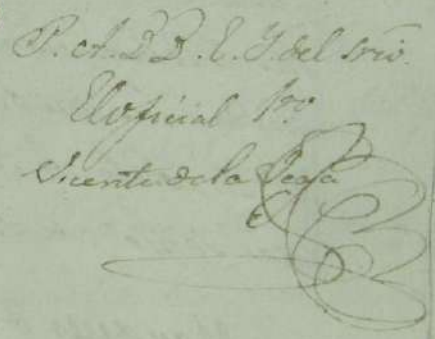 P. A. D D. E. Y. del Srio.
El oficial 1ro
Vicente de la